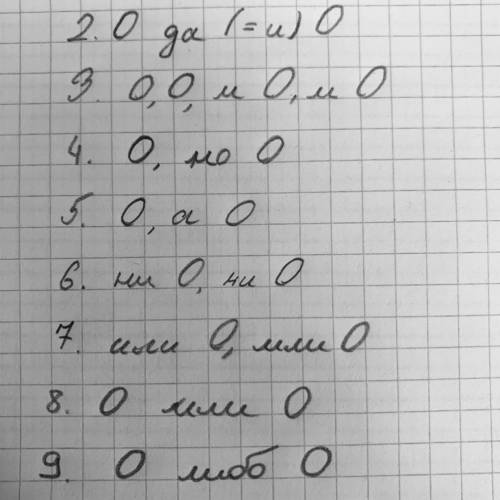 2. О да (= и) О
3. О, О, и О, и О
4. О, но О
5. О, а О
6. ни О, ни О
7. или О, или О
8. О или О
9. О либ О